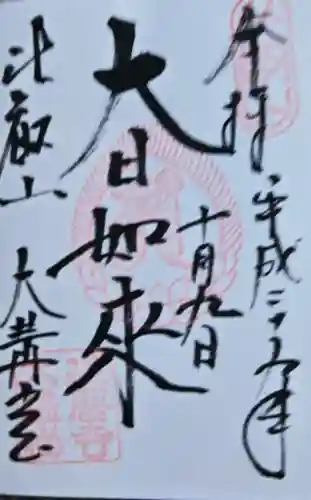 奉拝 平成二十五年
十月九日
大日如来
比叡山 大講堂